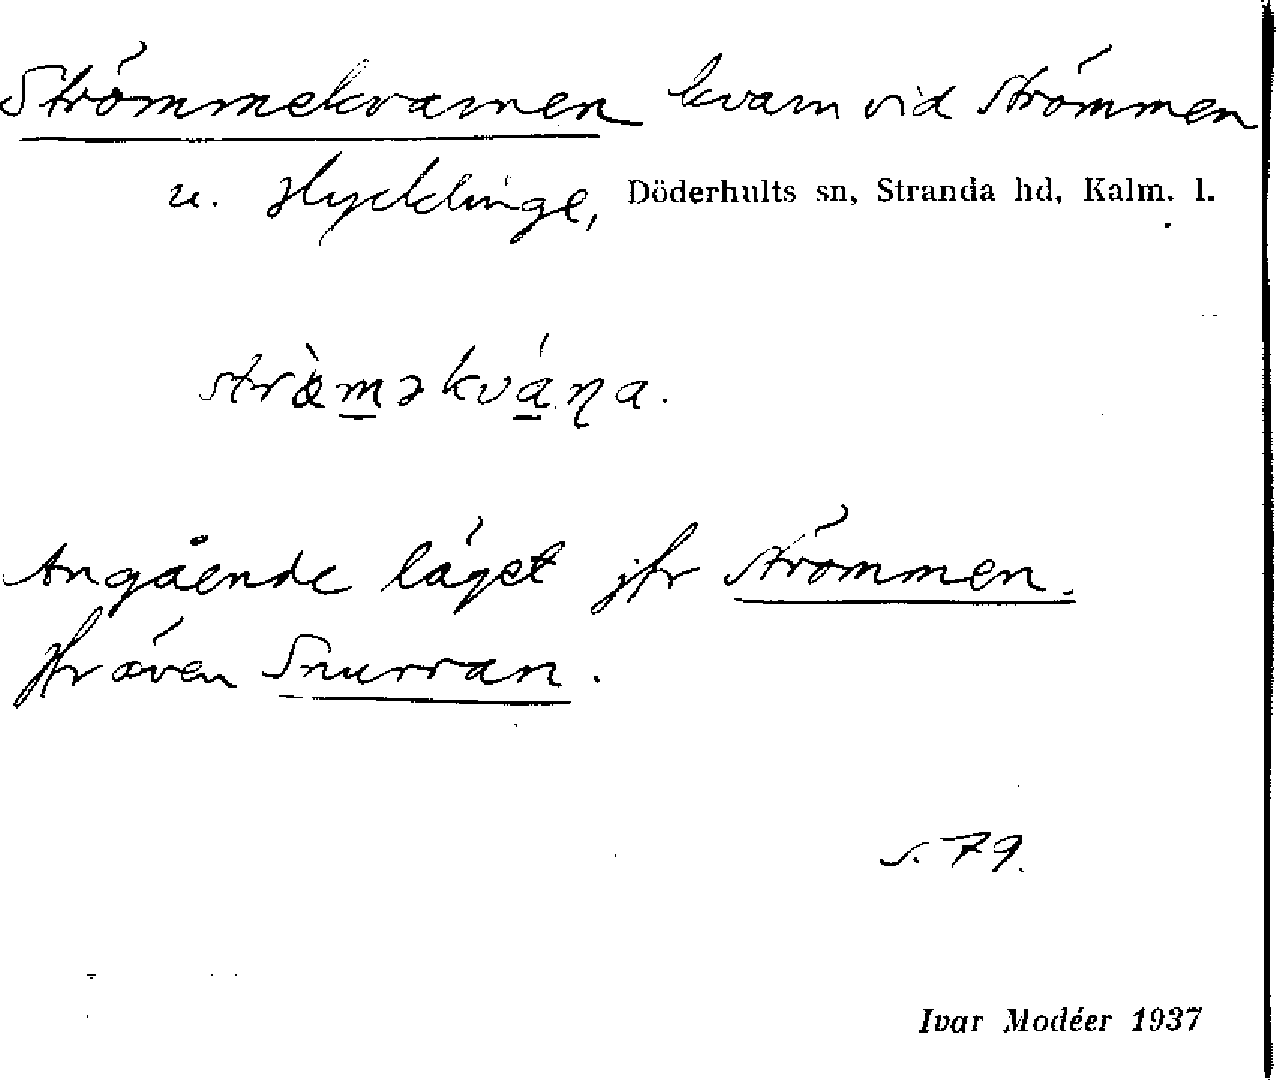 Strömmekvarnen kvarn vid Strömmen
u. Hycklinge, Döderhults sn, Stranda hd, Kalm. l.
strö̀məkvána.
Angående läget jfr Strömmen.
Jfr även Snurran.
s. 79.
Ivar Modéer 1937